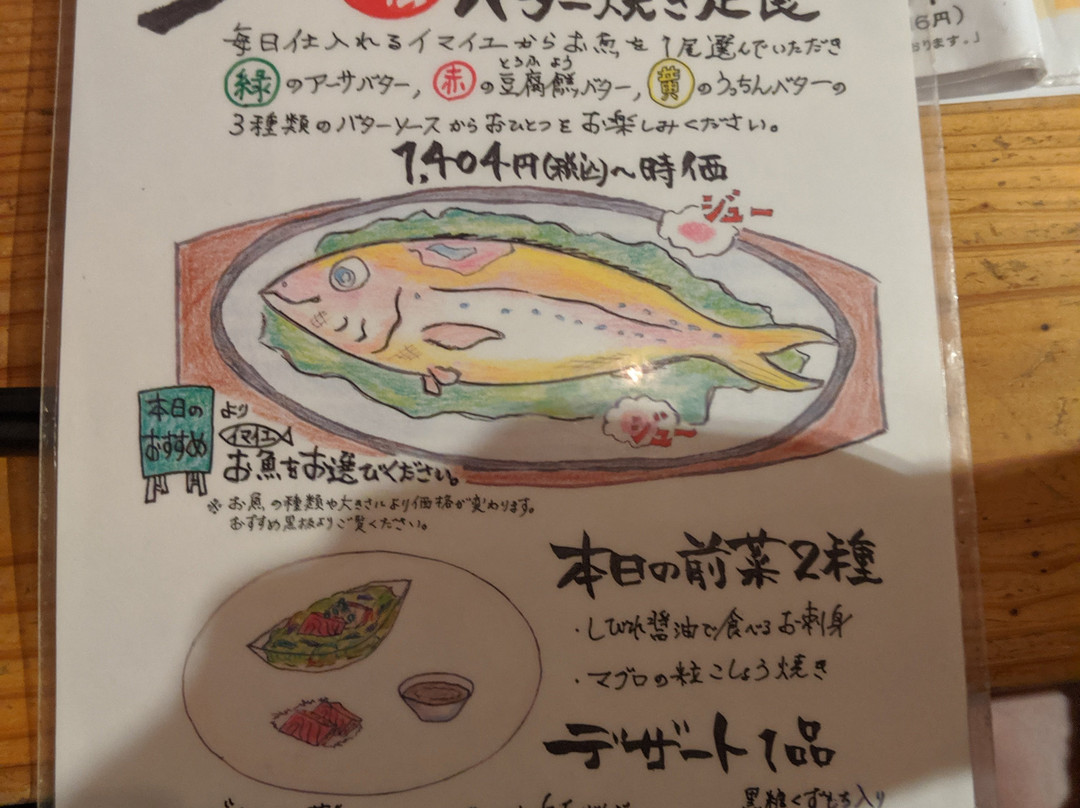 バター焼き定食
毎日仕入れるイマイユからお魚を1尾選んでいただき
緑のアーサバター, 赤の豆腐餻バター, 黄のうっちんバターの
とうふよう
3種類のバターソースからおひとつをお楽しみください。
1,404円(税込)〜時価
ジュー
ジュー
本日の
おすすめ
より
イマイユ
お魚をお選びください。
※お魚の種類や大きさにより価格が変わります。
おすすめ黒板よりご覧ください。
本日の前菜2種
・しびれ醤油で食べるお刺身
・マグロの粒こしょう焼き
デザート1品
黒糖くずもち入り
6円)
おります。」